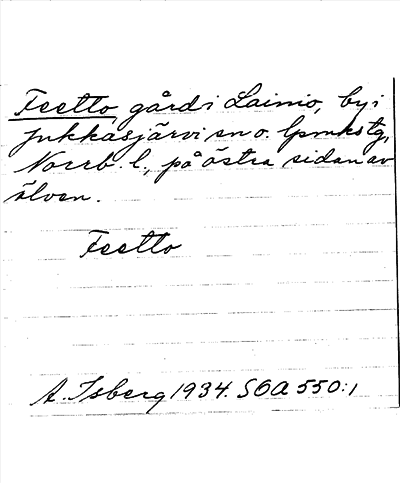 Feetto, gård i Lainio, by i
Jukkasjärvi sn o. lpmkstg,
Norrb. l., på östra sidan av
älven.
Feetto
A. Isberg 1934. SOA 550:1